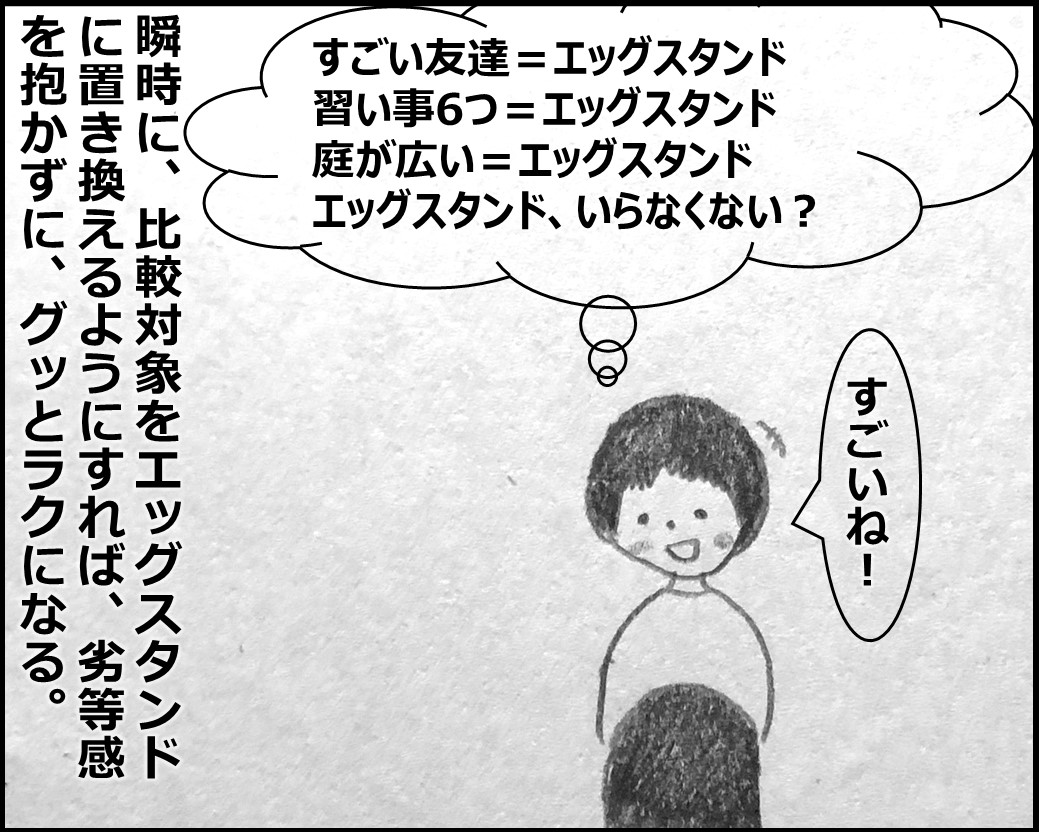 すごい友達＝エッグスタンド
習い事6つ＝エッグスタンド
庭が広い＝エッグスタンド
エッグスタンド、いらなくない？
すごいね！
瞬時に、比較対象をエッグスタンド
に置き換えるようにすれば、劣等感
を抱かずに、グッとラクになる。